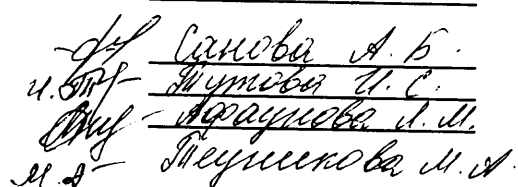 Санова А. Б.
Тутова И. С.
Афаунова Л. М.
Теуникова М. А.